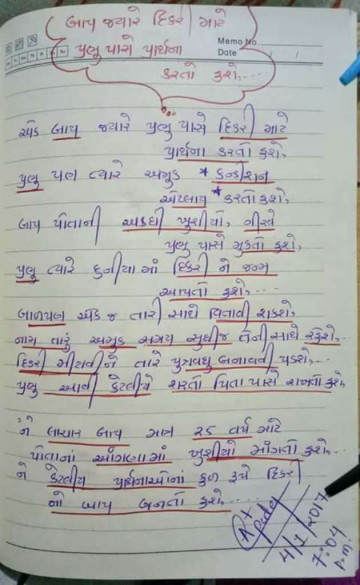 બાપ જયારે દિકરી માટે
પ્રભુ પાસે પ્રાર્થના
કરતો હશે....
Memo No
Date
એક બાપ જયારે પ્રભુ પાસે દિકરી માટે
પ્રાર્થના કરતો હશે,
પ્રભુ પણ ત્યારે અમુક * કન્ડીશન
* કરતો હશે,
બાપ પોતાની અડધી ખુશીયો, ગીરવે
પ્રભુ પાસે મુકતો હશે,
પ્રભુ ત્યારે દુનીયા માં દિકરી ને જન્મ
આપતો હશે,...
બાળપણ એક જ તારી સાથે વિતાવી શકશે,
નામ તારું અમુક સમય સુધીજ તેની સાથે રહેશે,
દિકરી મીટાવીને તારે પુત્રવધુ બનાવવી પડશે,...
પ્રભુ આવી કેટલીયે શરતો પિતા પાસે રાખતો હશે,
ને લાચાર બાપ માત્ર ૨૫ વર્ષ માટે
પોતાનાં આંગણામાં ખુશીયો માંગતો હશે,..
ને કેટલીય પ્રાર્થનાઓનાં ફળ રૂપે દિકરી
નો બાપ બનતો હશે....
4/1/2017
7:04
p.m!